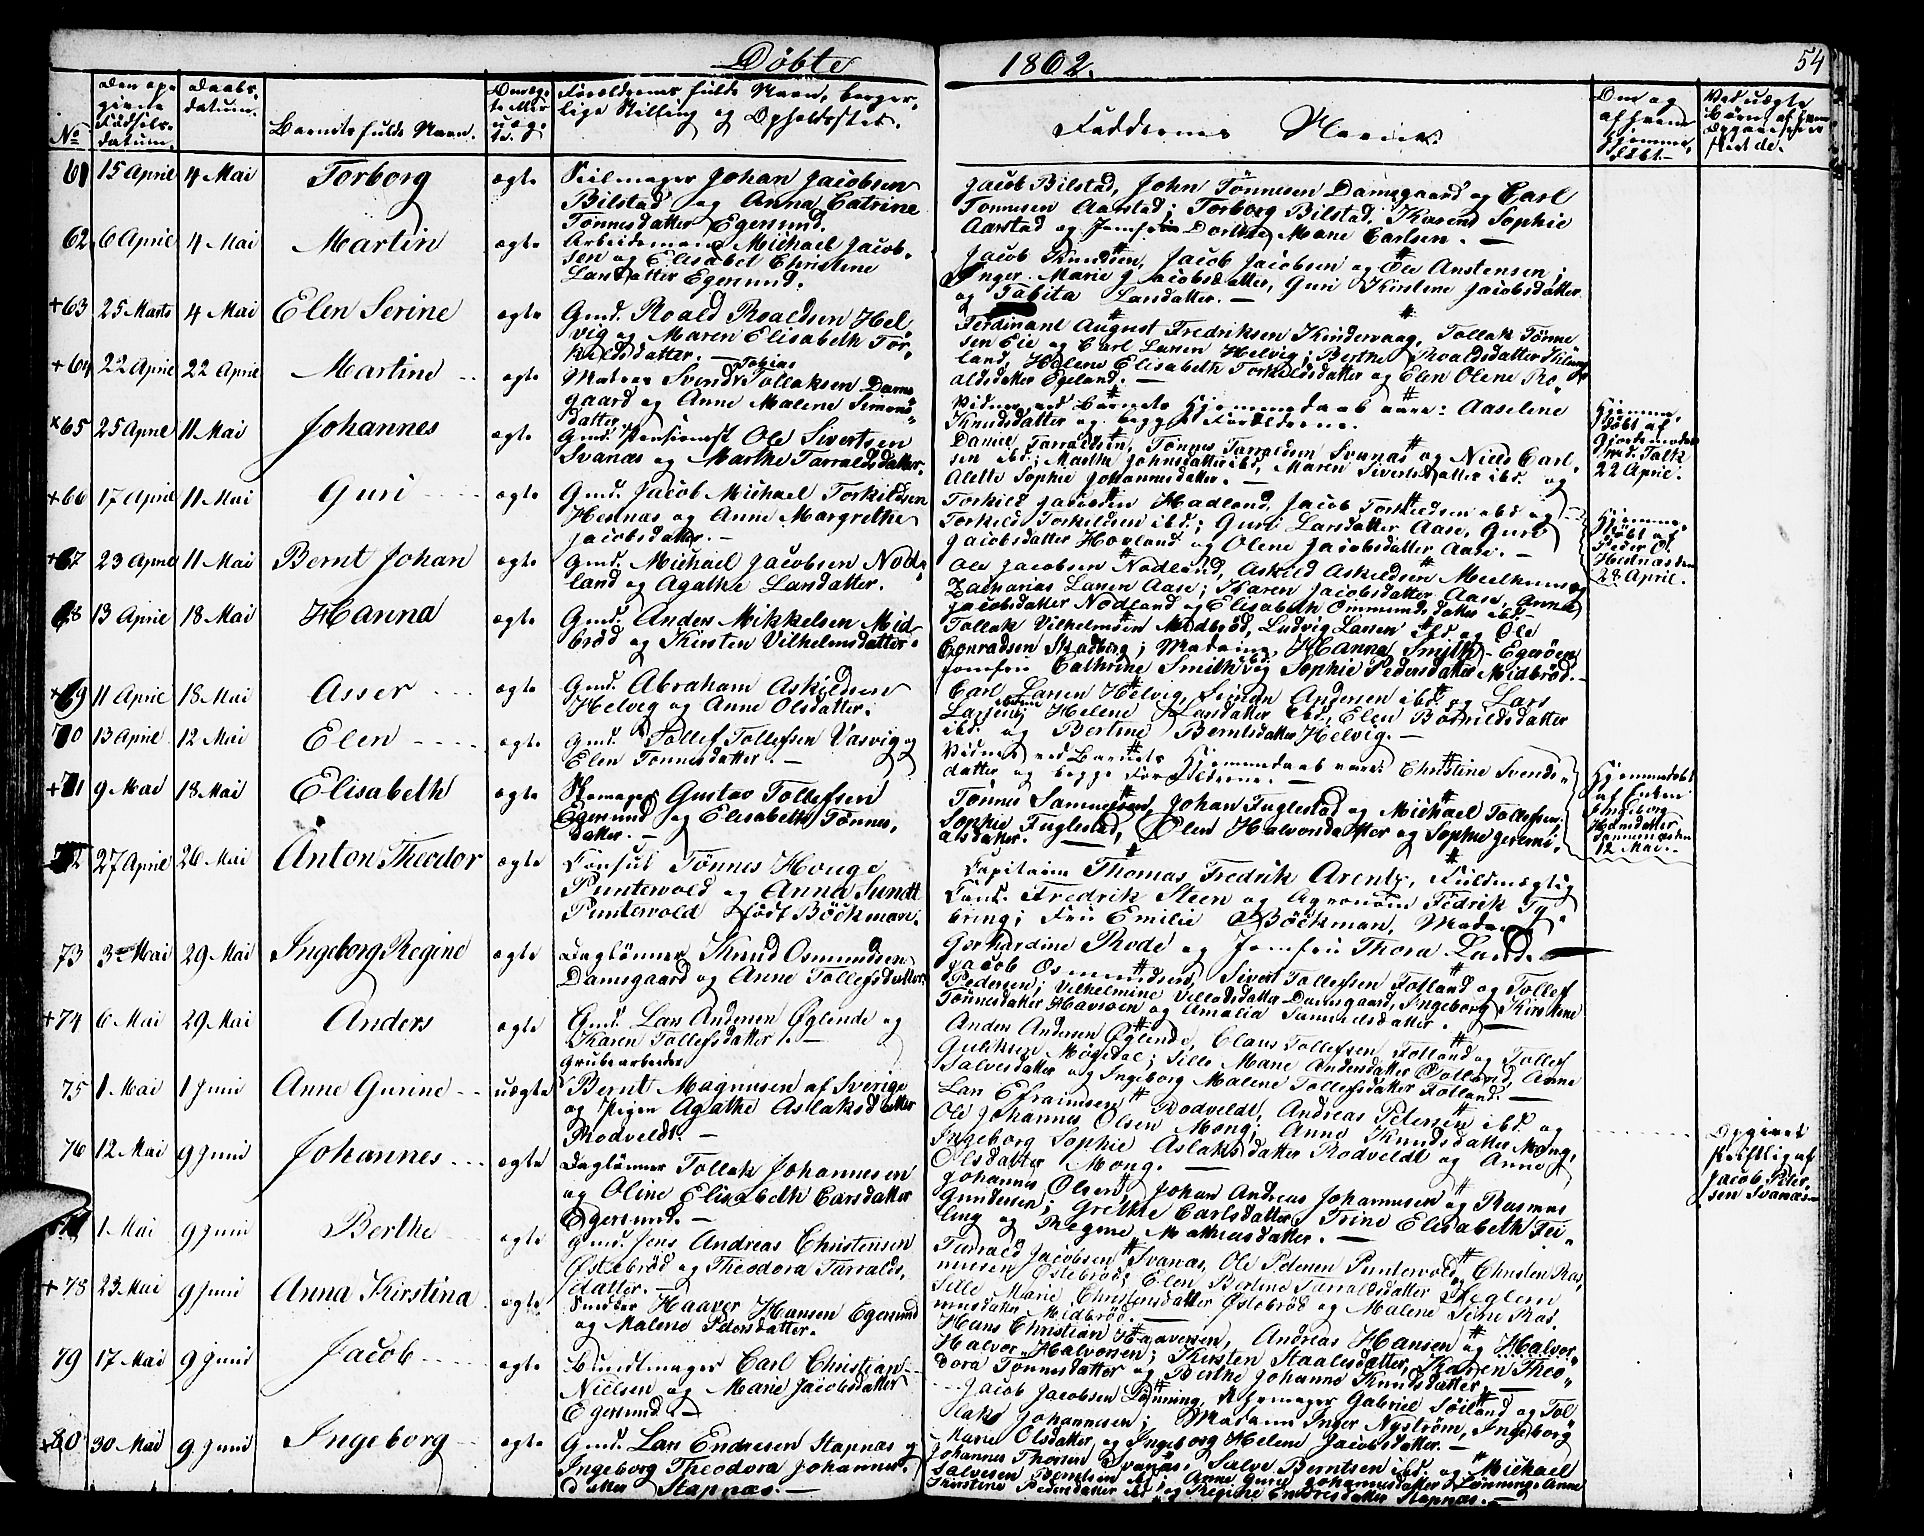 Döbte 1862. 54
No
Den op-
givne
Födsels-
datum.
Daabs-
datum.
Barnets fulde Navn.
Om æg-
te eller
uæg-
te.
Forældrenes fulde Navn, borger-
lige Stilling og Opholdssted.
Faddernes Navne.
Om og
af hvem
hjemme-
döbt.
Ved uægte
Börn, af hvem
Opgaven er
skeet de.
61 15 April 4 Mai Torborg ægte Seilmager Johan Jacobsen
Bilstad og Anna Catrine
Tönnesdatter Egersund.
Jacob Bilstad, John Tönnesen Damsgaard og Carl
Tönnesen Aarstad; Torborg Bilstad, Karen Sophie
Aarstad og Jomfru Dorthe Marie Carlsen. —
62 6 April 4 Mai Martin ægte Arbeidsmand Michael Jacob-
sen og Elisabet Christine
Larsdatter Egersund.
Jacob Knudsen, Jacob Jacobsen og Ole Anstensen;
Inger Marie Jacobsdatter, Guri Kirstine Jacobsdatter
og Tabita Larsdatter. —
+63 25 Marts 4 Mai Elen Serine ægte Gmd. Roald Roaldsen Hel-
vig og Maren Elisabeth Tor-
kildsdatter. —
Ferdinant August Fredriksen Kindervaag, Tollak Tönne-
sen Eie og Carl Larsen Helvig; Berthe Roaldsdatter
land, Helene Elisabeth Torkildsdatter og Elen Olene Ro-
aldsdatter Egeland. —
+64 22 April 22 April Martine ægte Matros Svend Tobias Tollaksen Dams-
gaard og Anne Malene Simons-
datter.
Vidner ved Barnets Hjemmedaab vare: Aaselene
Knudsdatter og begge Forældrene.
Hjemme-
döbt af
Gjordemoder
Md. Falk
22 April.
×65 25 April 11 Mai Johannes ægte Gmd. Pensionist Ole Sivertsen
Svanæs og Marthe Tarraldsdatter.
Daniel Tarraldsen, Tönnes Tarraldsen Svanæs og Niels Carl-
sen ibd.; Marthe Johnsdatter ibd., Maren Sivertsdatter ibd. og
Alette Sophie Johannesdatter. —
+66 17 April 11 Mai Guri ægte Gmd. Jacob Michael Torkildsen
Hesnæs og Anne Margrethe
Jacobsdatter. —
Torkild Jacobsen Hadland, Jacob Torkildsen ibd og
Torkild Torkildsen ibd.; Guri Larsdatter Aase, Guro
Jacobsdatter Hovland og Olene Jacobsdatter Aase. —
Hjemme-
döbt af
Peder O.
Hednæs den
28 April.
+67 23 April 11 Mai Bernt Johan ægte Gmd. Michael Jacobsen Nod-
land og Agathe Larsdatter.
Ole Jacobsen Nodland, Askild Askildsen Meelhuus og
Zacharias Larsen Aase; Karen Jacobsdatter Aase, Anne
Jacobsdatter Nodland og Elisabeth Ommundsdatter ibd. —
68 13 April 18 Mai Hanna ægte Gmd. Anders Mikkelsen Mid-
bröd og Kirsten Vilhelmsdatter.
Tollak Vilhelmsen Midbröd, Ludvig Larsen ibd. og Ole
Conradsen Skadberg; Madame Hanna Smith Egeröen,
Jomfru Cathrine Smith ibd og Sophie Pedersdatter Midbröd. —
+69 11 April 18 Mai Asser ægte Gmd. Abraham Askildsen
Helvig og Anne Olsdatter.
Carl Larsen Helvig, Simon Andersen ibd. og Lars
Larsen; Helene Larsdatter ibd., Elen Botnildsdatter
ibd. og Bertine Berntsdatter Helvig. —
70 13 April 12 Mai Elen ægte Gmd. Tollef Tollefsen Vasvig og
Elen Tönnesdatter. —
Vidner ved Barnets Hjemmedaab vare: Christine Svends-
datter og begge Forældrene. —
Hjemmedöbt
af Enken
Ingeborg
Hansdatter
Sannarnæs den
12 Mai.
+71 9 Mai 18 Mai Elisabeth ægte Skomager Gustav Tollefsen
Egersund og Elisabeth Tönnes-
datter. —
Tönnes Samuelsen, Johan Fuglestad og Michael Tollefsen;
Sophie Fuglestad, Elen Halvorsdatter og Sophie Jeremi-
asdatter. —
72 27 April 26 Mai Anton Theodor ægte Consul Tönnes Houge
Puntervold og Anna Sundt
Puntervold född Böckman.
Capitain Thomas Fredrik Arentz, Fuldmægtig
Cand. Fredrik Steen og Agronom Fidrik Ty-
bring; Fru Emilie Böckman, Madame
Gerhardine Rode og Jomfru Thora Lund. —
73 3 Mai 29 Mai Ingeborg Regine ægte Daglönner Knud Osmundsen
Damsgaard og Anne Tollefsdatter.
Jacob Osmundsen, Sivert Tollefsen Fotland og Tollef
Pedersen; Vilhelmine Villadsdatter Damsgaard, Ingeborg Kirstine
Tönnesdatter Havsöen og Amalia Samuelsdatter. —
+74 6 Mai 29 Mai Anders ægte Gmd. Lars Andersen Öglende og
Karen Tollefsdatter. —
Anders Andersen Öglende, Claus Tollefsen Fotland og Tollef
Guliksen Mögedal; Sille Marie Andersdatter Fotland, Anne
Salvesdatter og Ingeborg Malene Tollefsdatter Fotland. —
75 1 Mai 1 Juni Anne Gurine uægte Grubearbeider
Bernt Magnusen af Sverige
og Pigen Agathe Aslaksdatter
Rodveldt. —
Lars Efraimsen Rodveldt, Andreas Petersen ibd. og
Ole Johannes Olsen Mong; Anne Knudsdatter Mong,
Ingeborg Sophie Aslaksdatter Rodveldt og Anne
Olsdatter Mong. —
Opgivet
skriftlig af
Jacob Peter-
sen Svanæs. —
76 12 Mai 9 Juni Johannes ægte Daglönner Tollak Johannesen
og Oline Elisabeth Carsdatter
Egersund. —
Johannes Olsen, Johan Andreas Johannesen og Rasmus
Gundersen; Grethe Carlsdatter, Trine Elisabeth Fei-
ling og Regine Mathiasdatter. —
+77 1 Mai 9 Juni Berthe ægte Gmd. Jens Andreas Christensen
Östebröd og Theodora Tarralds-
datter. —
Tarrald Jacobsen Svanæs, Ole Petersen Puntervold og Christen Ras-
musen Östebröd; Elen Bertine Tarraldsdatter Meglen
Sille Marie Christensdatter Östebröd og Malene Sine Ras-
musdatter Midbröd. —
+78 23 Mai 9 Juni Anna Kirstina ægte Snedker Haaver Hansen Egersund
og Malene Pedersdatter.
Hans Christian Haaversen, Andreas Hansen og Halvor
Halvor Halvorsen; Kirsten Staalesdatter, Karen Theo-
dora Tönnesdatter og Berthe Johanne Knudsdatter. —
79 17 Mai 9 Juni Jacob ægte Bundtmager Carl Christian
Nielsen og Marie Jacobsdatter
Egersund. —
Jacob Jacobsen Lönning, Skomager Gabriel Söiland og Tol-
lak Johannesen; Madame Inger Nyström, Ingeborg
Marie Olsdatter og Ingeborg Helene Jacobsdatter. —
+80 30 Mai 9 Juni Ingeborg ægte Gmd. Lars Endresen Stapnæs og
Ingeborg Theodora Johannes-
datter Stapnæs. —
Johannes Thorsen Svanæs, Salve Berntsen ibd. og Michael
Salvesen Berntsen ibd.; Anne Gurie Johannesdatter Lönning, Anne
Kirstine Pedersdatter ibd. og Regine Endresdatter Stapnæs. —